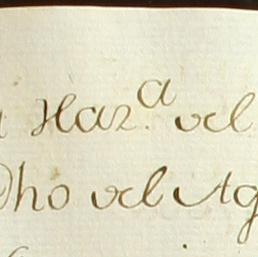 Haz.ᵃ del
Dho del Ag